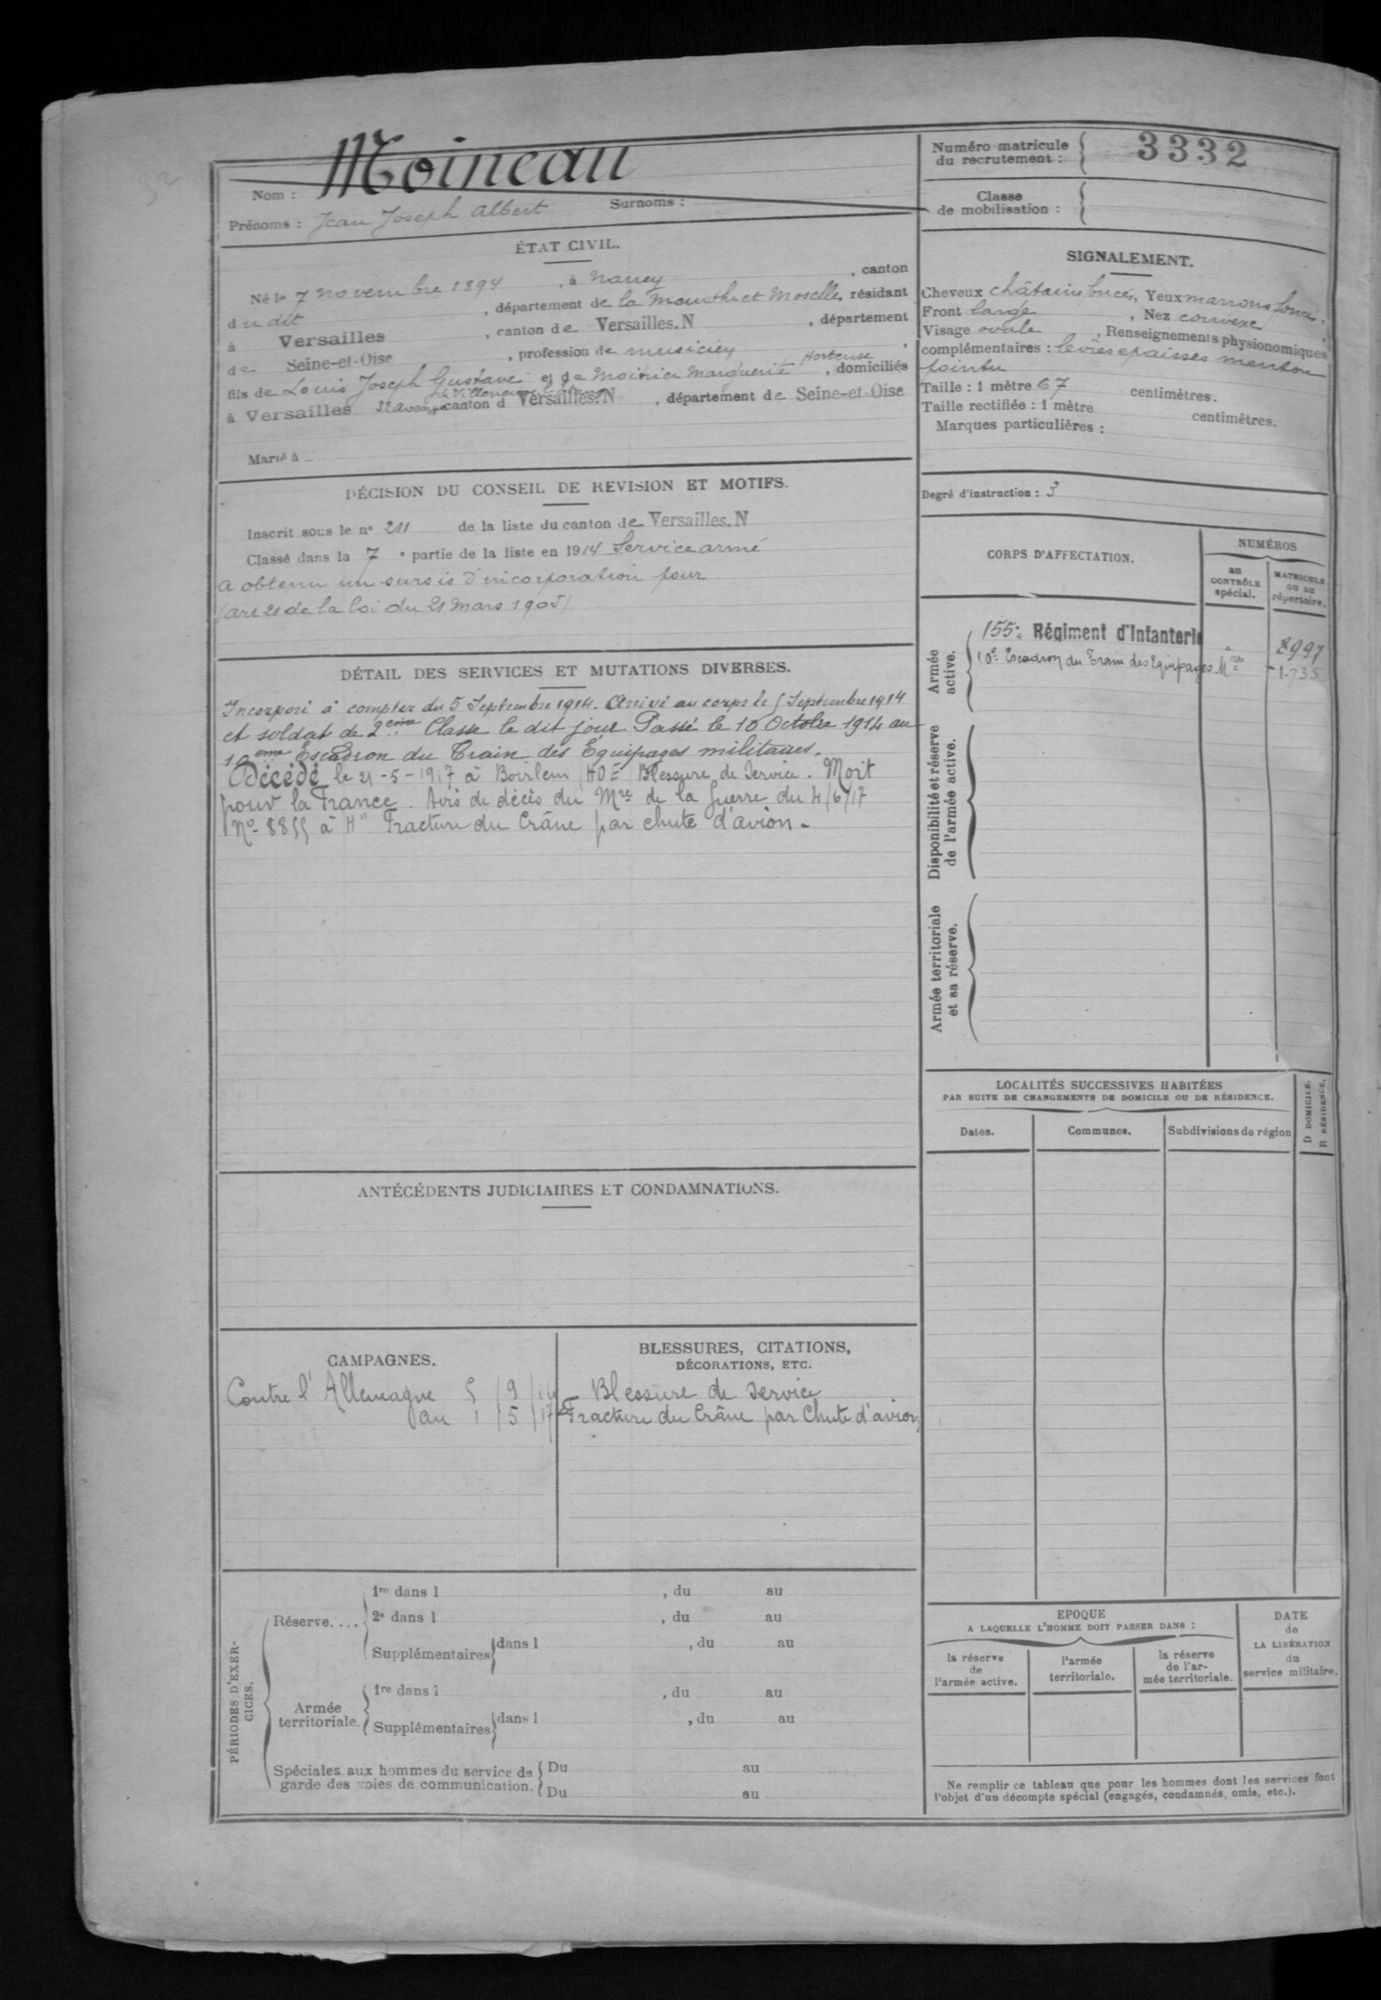 Nom : Moineau
Prénoms : Jean Joseph Albert Surnoms :
Numéro matricule du recrutement : 3332
Classe de mobilisation :
ÉTAT CIVIL.
Né le 7 novembre 1894, à Nancy, canton
du dit, département de la Meurthe et Moselle, résidant
à Versailles, canton de Versailles.N, département
de Seine-et-Oise, profession de musicien,
fils de Louis Joseph Gustave et de Moitrier Marguerite Hortense, domiciliés
à Versailles canton d Versailles.N, département de Seine-et-Oise
Marié à
SIGNALEMENT.
Cheveux châtains foncés, Yeux marrons foncés,
Front large, Nez convexe,
Visage ovale, Renseignements physionomiques
complémentaires : lèvres epaisses menton
pointu
Taille : 1 mètre 67 centimètres.
Taille rectifiée : 1 mètre centimètres.
Marques particulières :
Degré d'instruction : 3
DÉCISION DU CONSEIL DE REVISION ET MOTIFS.
Inscrit sous le n° 211 de la liste du canton de Versailles.N
Classé dans la 7e partie de la liste en 1914 Service armé
a obtenu un sursis d'incorporation pour
(art 21 de la loi du 21 mars 1905)
DÉTAIL DES SERVICES ET MUTATIONS DIVERSES.
Incorporé à compter du 5 Septembre 1914. Arrivé au corps le 5 Septembre 1914
et soldat de 2ème Classe le dit jour Passé le 10 Octobre 1914 au
10ème Escadron du Train des Équipages militaires.
Décédé le 21-5-1917 à (HOE) Blessure de Service. Mort
pour la France. Avis de décès du Mre de la Guerre du 4/6/17
No 8855 à H" Fracture du Crâne par chute d'avion.
CORPS D'AFFECTATION.
NUMÉROS
au CONTRÔLE spécial.
MATRICULE ou au répertoire.
Armée active.
155e Régiment d'Infanterie " 8997
10e Escadron du Train des Equipages Mres 1.735
Disponibilité et réserve de l'armée active.
Armée territoriale et sa réserve.
LOCALITÉS SUCCESSIVES HABITÉES
PAR SUITE DE CHANGEMENTS DE DOMICILE OU DE RÉSIDENCE.
Dates. Communes. Subdivisions de région D DOMICILE. R RÉSIDENCE.
ANTÉCÉDENTS JUDICIAIRES ET CONDAMNATIONS.
CAMPAGNES.
Contre l'Allemagne 5/9/14
au 1/5/17
BLESSURES, CITATIONS,
DÉCORATIONS, ETC.
Blessure de Service
Fracture du Crâne par Chute d'avion
PÉRIODES D'EXERCICES.
Réserve....
1re dans l , du au
2e dans l , du au
Supplémentaires dans l , du au
Armée territoriale.
1re dans l , du au
Supplémentaires dans l , du au
Spéciales aux hommes du service de garde des voies de communication.
Du au
Du au
EPOQUE
A LAQUELLE L'HOMME DOIT PASSER DANS :
la réserve de l'armée active.
l'armée territoriale.
la réserve de l'armée territoriale.
DATE de LA LIBÉRATION du service militaire.
Ne remplir ce tableau que pour les hommes dont les services font
l'objet d'un décompte spécial (engagés, condamnés, omis, etc.).